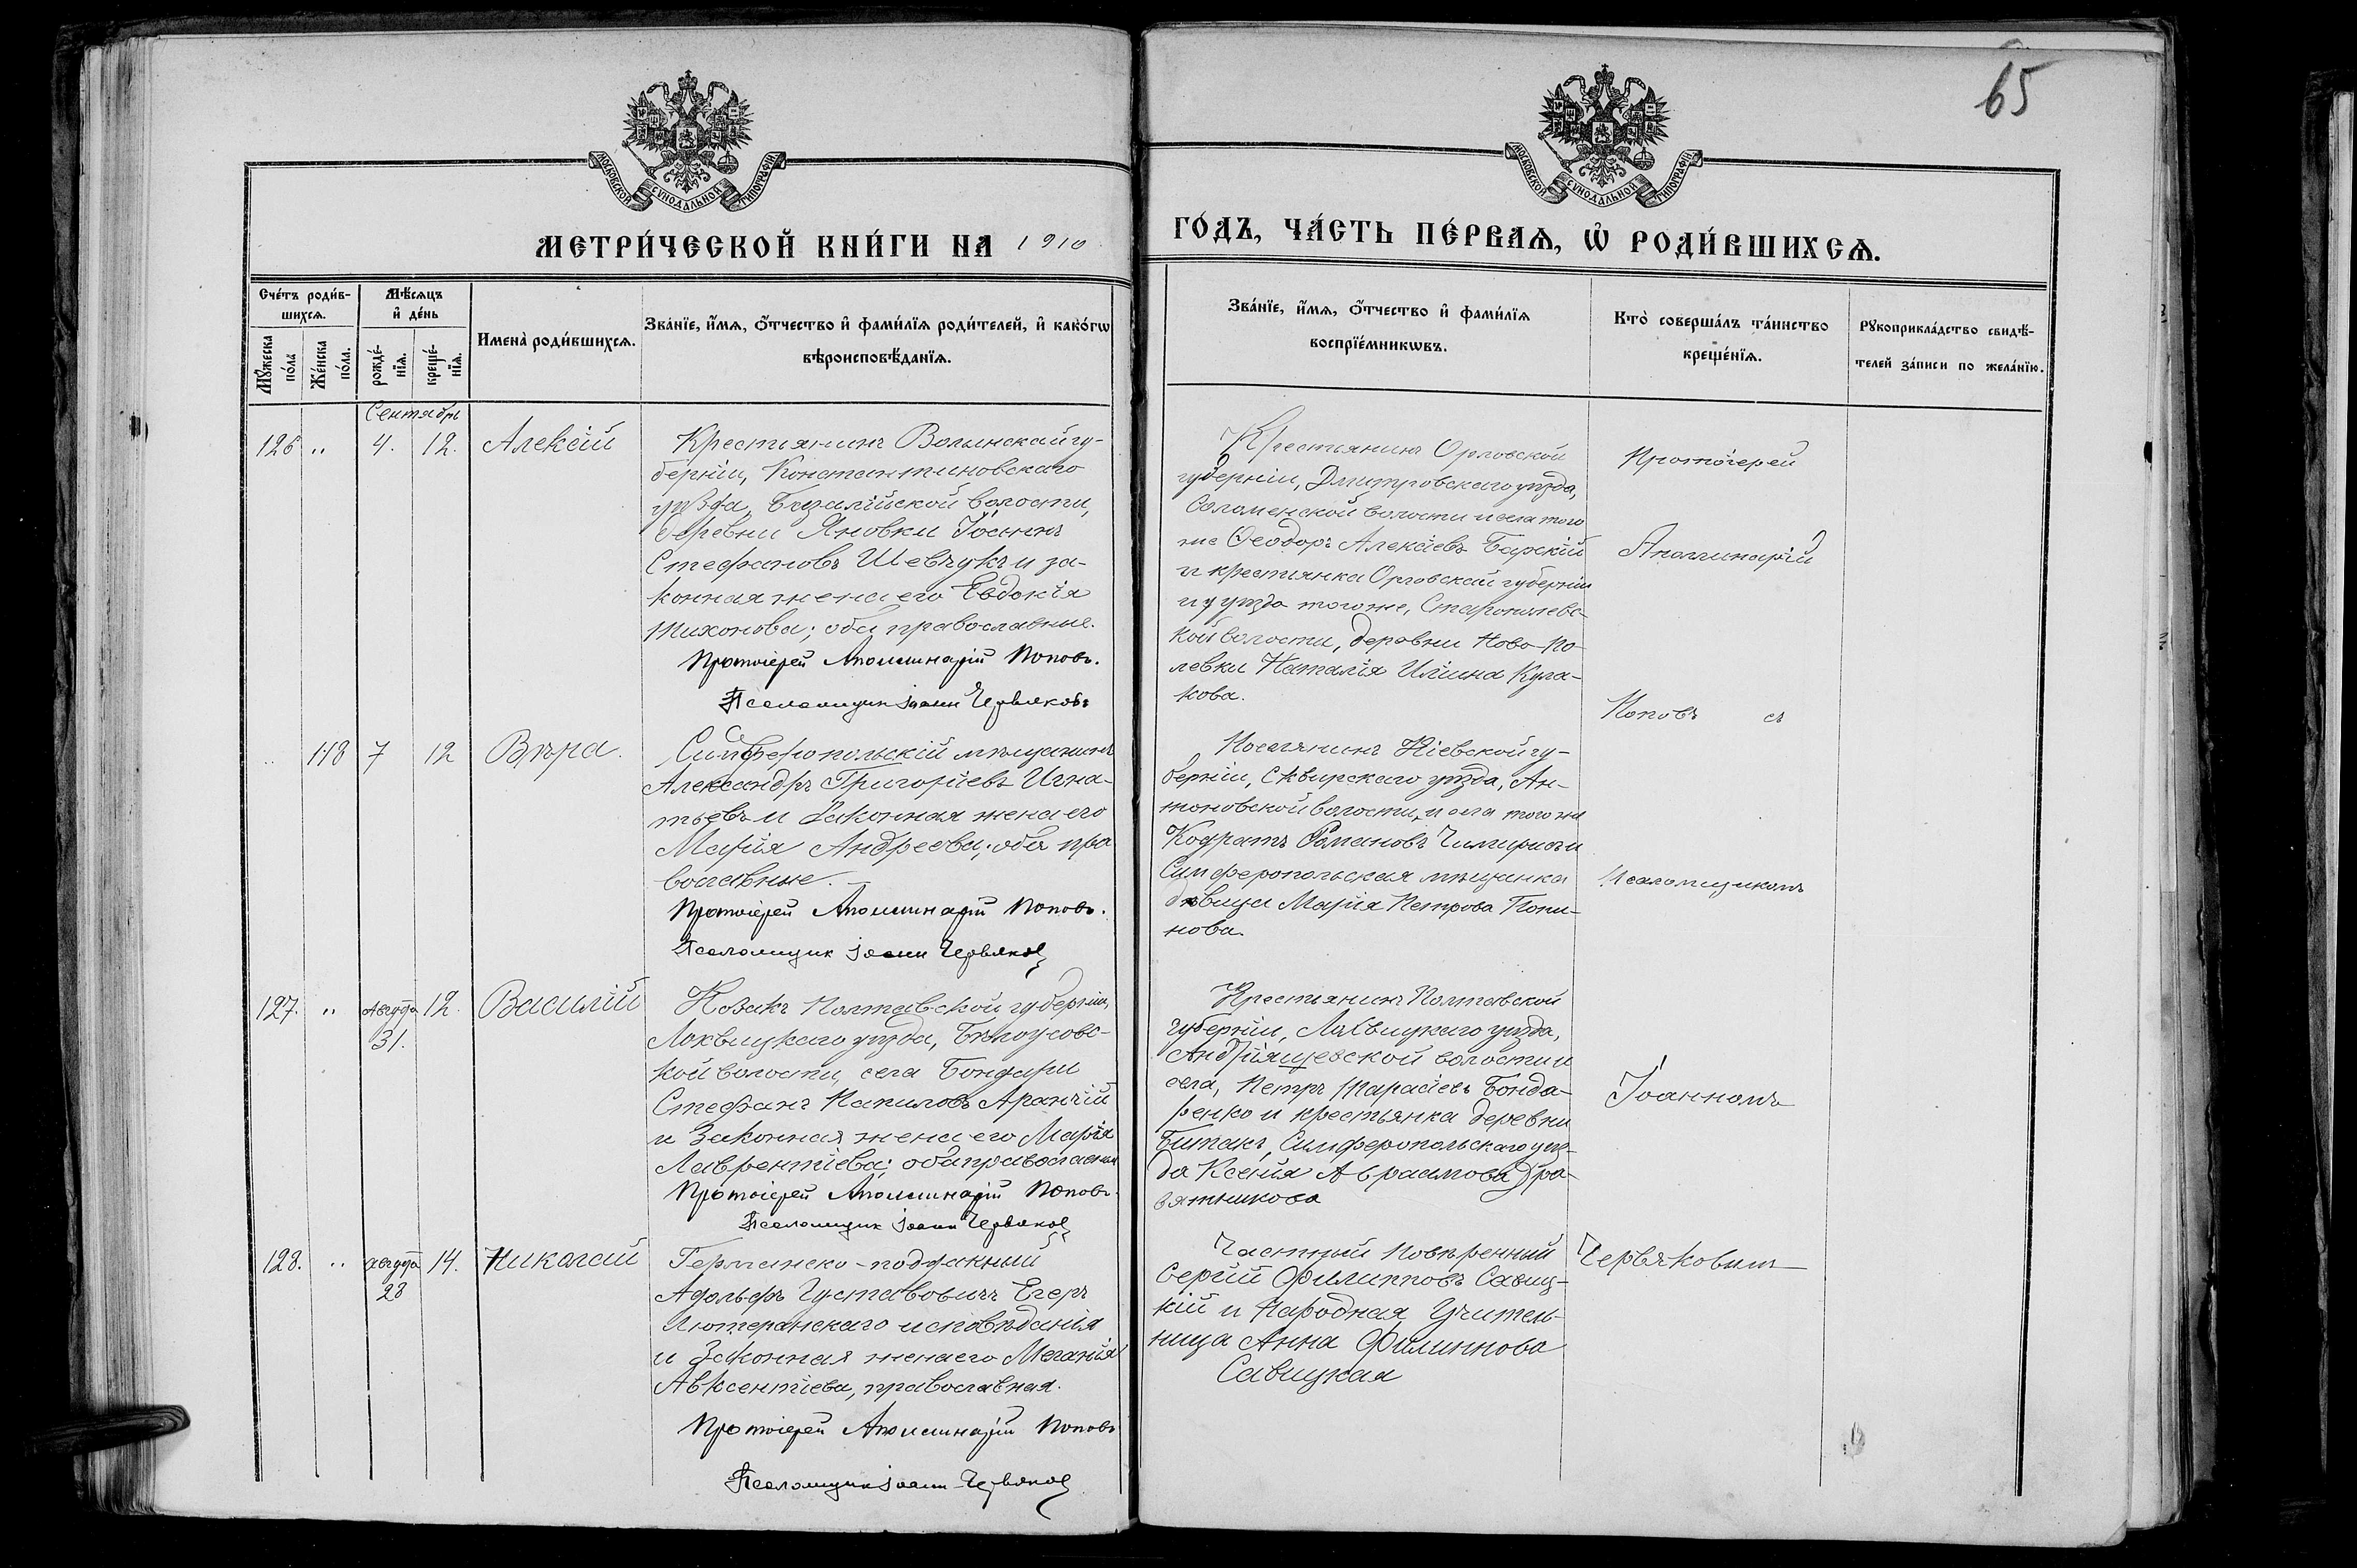 65
МОСКОВСКОЙ СУНОДАЛЬНОЙ ТИПОГРАФІИ
МОСКОВСКОЙ СУНОДАЛЬНОЙ ТИПОГРАФІИ
МЕТРИ́ЧЕСКОЙ КНИ́ГИ НА 1910
ГО́ДЪ, ЧА́СТЬ ПЕ́РВАѦ, Ѡ РОДИ́ВШИХСѦ.
Сче́тъ роди́в-
шихсѧ.
Мꙋжеска
по́ла
Же́нска
по́ла.
Мѣ́сѧцъ
и҆ де́нь
рожде́-
нїѧ.
креще́-
нїѧ.
Имена̀ роди́вшихсѧ.
Зва́нїе, и҆́мѧ, ѻ҆́тчество и҆ фами́лїѧ роди́телей, и҆ како́гѡ
вѣроисповѣ́данїѧ.
Зва́нїе, и҆́мѧ, ѻ҆́тчество и҆ фами́лїѧ
воспрїе́мникѡвъ.
Кто̀ соверша́лъ та́инство
креще́нїѧ.
Рꙋкоприкла́дство свидѣ́-
телей за́писи по жела́нїю.
Сентябрь
126 " 4. 12. Алексій
Крестьянинъ Волынской гу-
берніи, Константиновскаго
уѣзда, Базалійской волости,
деревни Яновки Іоаннъ
Стефановъ Шевчукъ и за-
конная жена его Евдокія
Тихонова; оба православные.
Протоіерей Аполлинарій Поповъ.
Псаломщик Іоанн Червяковъ
Крестьянинъ Орловской
губерніи, Дмитровскаго уѣзда,
Соломенской волости и села того
же Ѳеодоръ Алексіевъ Барскій
и крестьянка Орловской губерніи
и уѣзда того же, Старополевс-
кой волости, деревни Ново-По-
левки Наталія Иліина Кула-
кова.
Протоіерей
Аполлинарій
Поповъ съ
" 118 7 12 Вѣра.
Симферопольскій мѣщанинъ
Александръ Григоріевъ Игна-
тьевъ и законная жена его
Марія Андреева; оба пра
вославные.
Протоіерей Аполлинарій Поповъ.
Псаломщик Іоанн Червяков
Поселянинъ Кіевской гу-
берніи, Сквирскаго уѣзда, Ан-
тоновской волости, и села того же
Кодратъ Романовъ и
Симферопольская мѣщанка
дѣвица Марія Петрова Попи-
нова.
Псаломщикомъ
127. " Августа 31. 12. Василій
Козакъ Полтавской губерніи,
Лохвицкаго уѣзда, Бѣлоусовс-
кой волости, села Бондари
Стефанъ Аранчій
и законная жена его Марія
Лаврентіева; оба православные
Протоіерей Аполлинарій Поповъ.
Псаломщик Іоанн Червяков
Крестьянинъ Полтавской
губерніи, Лохвицкаго уѣзда,
Андріящевской волости и
села, Петръ Тарасіевъ Бонда-
ренко и крестьянка деревни
Битакъ, Симферопольскаго уѣз-
да Ксенія Авраамова
Іоанномъ
128. " августа 28 14. Николай
Германско-подданный
Адольфъ Густавовичъ Егеръ
Лютеранскаго исповѣданія
и законная жена его Меланія
Авксентіева, православная.
Протоіерей Аполлинарій Поповъ
Псаломщик Іоанн Червяков
Частный повѣренный
Сергій Филипповъ Савиц-
кій и Народная Учитель-
ница Анна Филиппова
Савицкая
Червяковымъ